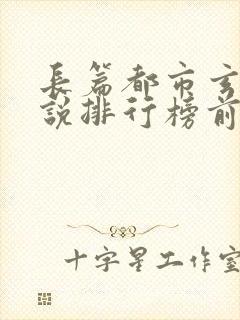 長篇都市玄
說排行榜前
十字星工作室